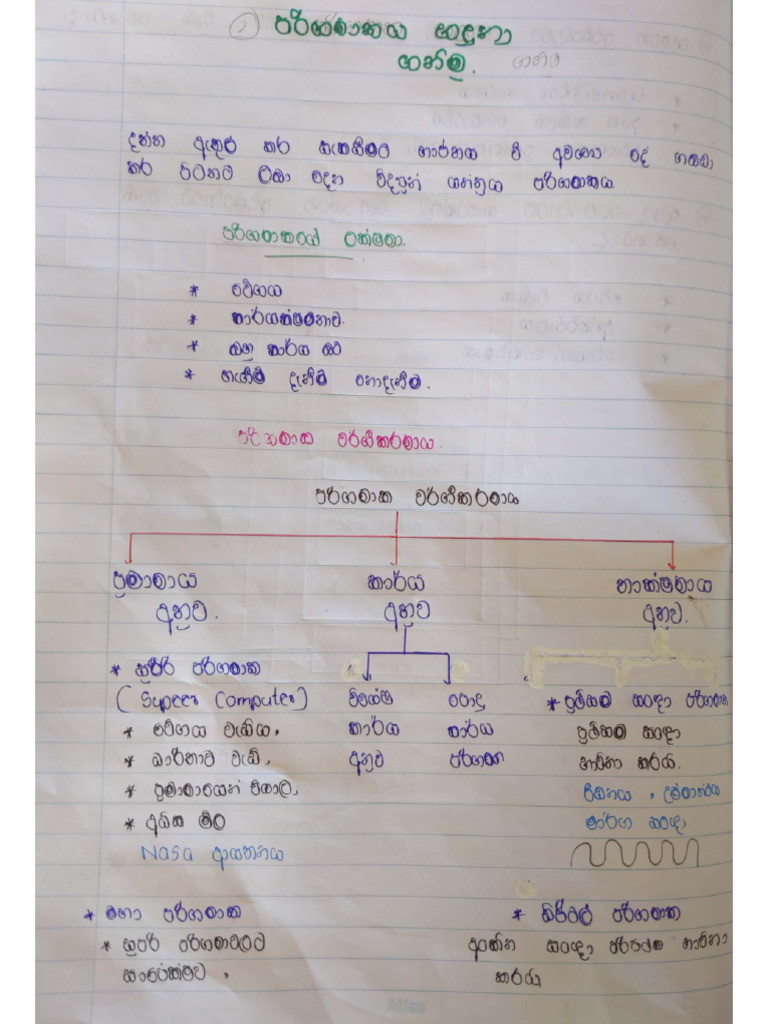 ① පරිගණකය හඳුනා
ගනිමු. ගනිමු
දත්ත ඇතුල් කර සැකසීමට භාජනය වී අවශ්‍ය දේ ගබඩා
කර පිටතට ලබා දෙන විද්‍යුත් යන්ත්‍රය පරිගණකය
පරිගණකයේ ලක්ෂණ
* වේගය
* කාර්යක්ෂමතාව.
* බහු කාර්ය බව
* හැඟීම් දැනීම් නොදැනීම.
පරිගණක වර්ගීකරණය.
පරිගණක වර්ගීකරණය
ප්‍රමාණය කාර්ය තාක්ෂණය
අනුව. අනුව අනුව.
* සුපිරි පරිගණක
(Super Computer) විශේෂ පොදු * ප්‍රතිසම සංඥා පරිගණක
* වේගය වැඩිය. කාර්ය කාර්ය ප්‍රතිසම සංඥා
* ධාරිතාව වැඩි. අනුව පරිගණක භාවිතා කරයි.
* ප්‍රමාණයෙන් විශාල.
* අධික මිල මාර්ග සංඥා
Nasa ආයතනය
* මහා පරිගණක * ඩිජිටල් පරිගණක
* සුපිරි පරිගණකවලට අංකිත සංඥා භාවිතා
සාපේක්ෂව. කරයි